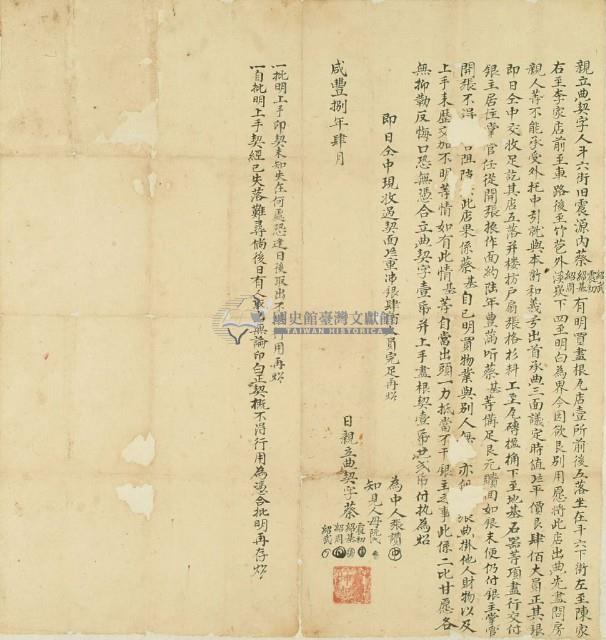 親立典契字人斗六街旧震源內蔡紹武震初紹基紹周有明買盡根瓦店壹所前後五落坐在斗六下街左至陳家
右至李家店前至車路後至竹芭外溪崁下四至明白為界今因欲艮別用愿將此店出典先盡問房
親人等不能承受外托中引就與本街和義号出首承典三面議定時值平價艮肆佰大員正其銀
即日仝中交收足訖其店五落并楼枋戶扇張格杉料工至瓦磚楹桷下至地基石器等項盡行交付
銀主居住掌官任從開張換作面約陸年豊滿听蔡基等備足艮元贖回如銀未便仍付銀主掌官
開張不得阻 此店果係蔡基自己明買物業與別人無亦 典掛他人財物以及
上手来歷交加不明等情如有此情基等自當出頭一力抵當不干銀主之事此係二比甘愿各
無抑勒反悔口恐無憑合立典契字壹帋并上手盡根契壹帋共弍帋付执為炤
即日仝中現收過契面重沛銀肆 員完足再炤
咸豐捌年肆月
日親立典契字蔡震初紹基紹周紹武
為中人張讚
知見人母阮氏
一批明上手印契未知失在何處恐達日後取出不 行用再炤
一自批明上手契經已失落難尋倘後日有人 無論印白正契概不得行用為憑合批明再存炤
國史館臺灣文獻館
TAIWAN HISTORICA